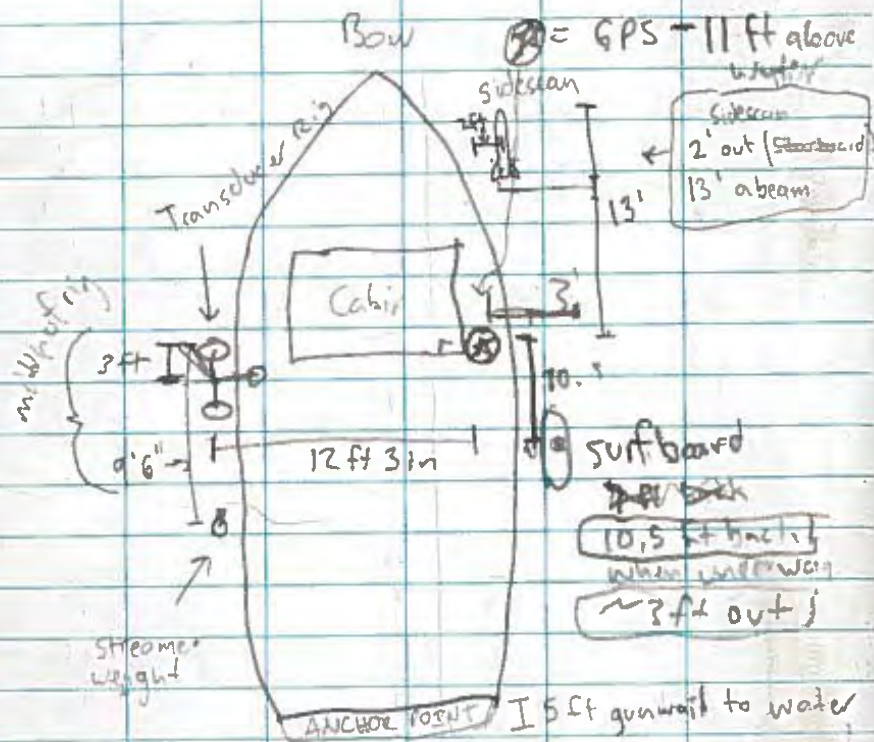 Bow
= GPS - 11 ft above
water
sidescan
sidescan
2' out (Starboard)
13' abeam
Transducer Rig
2ft
13'
Cabin
3'
3 ft
10.5
9'6"
12 ft 3 in
surfboard
10,5 ft back
when underway
~3 ft out
streamer
weight
ANCHOR POINT
5 ft gunwail to water